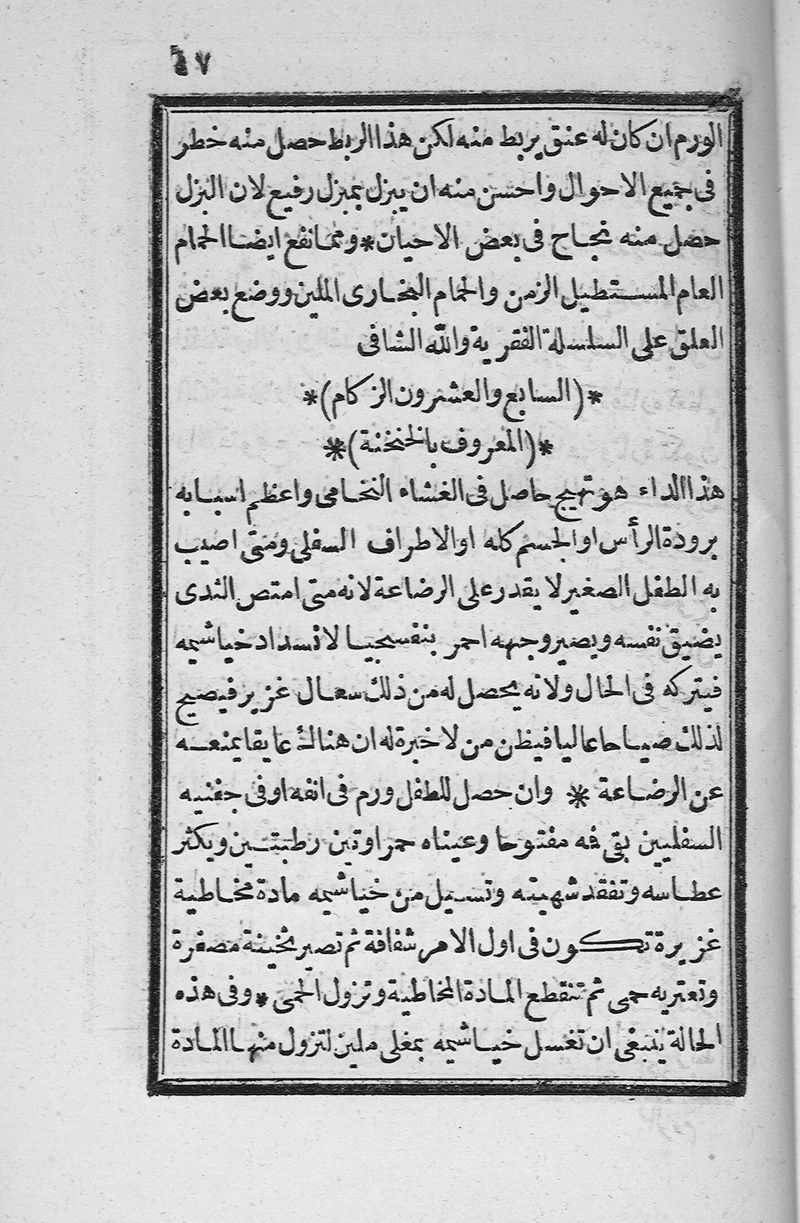 ٦٧
الورم ان كان له عنق يربط منه لكن هذا الربط حصل منه خطر
فى جميع الاحوال واحسن منه ان يبزل بمبزل رفيع لان البزل
حصل منه نجاح فى بعض الاحيان * ومما نفع ايضا الحمام
العام المستطيل الزمن والحمام البخارى الملين ووضع بعض
العلق على السلسلة الفقرية والله الشافى
*(السابع والعشرون الزكام)*
*(المعروف بالخنخنة)*
هذا الداء هو تهيج حاصل فى الغشاء النخامى واعظم اسبابه
برودة الرأس او الجسم كله او الاطراف السفلى ومتى اصيب
به الطفل الصغير لا يقدر على الرضاعة لانه متى امتص الثدى
يضيق نفسه ويصير وجهه احمر بنفسجيا لانسداد خياشيمه
فيتركه فى الحال ولانه يحصل له من ذلك سعال غزير فيصيح
لذلك صياحا عاليا فيظن من لا خبرة له ان هناك عايقا يمنعه
عن الرضاعة * وان حصل للطفل ورم فى انفه او فى جفنيه
السفليين بقى فمه مفتوحا وعيناه حمراوتين رطبتين ويكثر
عطاسه وتفقد شهيته وتسيل من خياشيمه مادة مخاطية
غزيرة تكون فى اول الامر شفافة ثم تصير ثخينة مصفرة
وتعتريه حمى ثم تنقطع المادة المخاطية وتزول الحمى * وفى هذه
الحالة ينبغى ان تغسل خياشيمه بمغلى ملين لتزول منها المادة